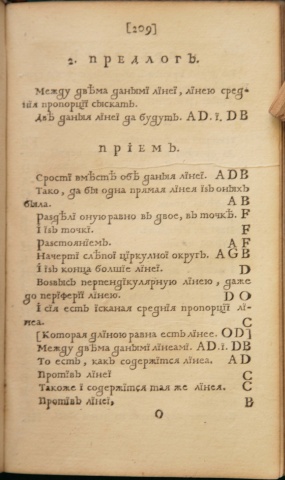 [209]
2. ПРЕДЛОГЪ.
Между двѣма даныїмї лїнеї, лїнею сред-
нїя пропорцїї сыскать.
Двѣ даныя лїнеї да будутъ. AD. ї. DB
ПРІЕМЪ.
Сростї вмѣстѣ обѣ даныя лїнеї. ADB
Тако, да бы одна прямая лїнея їзъ оныхъ
была. A B
Раздѣлї оную равно въ двое, въ точкѣ. F
І їзъ точкї. F
Разстоянїемъ. A F
Начертї слѣпої цїркулної округъ. AGB
І їзъ конца болшїе лїнеї. D
Возвысь перпендїкулярную лїнею, даже
до перїферїї лїнею. D O
І сїя есть їсканая среднїя пропорцїї лї-
неа. C
[Которая длїною равна есть лїнее. OD]
Между двѣма данымї лїнеамї. AD. ї. DB
То есть, какъ содержїтся лїнеа. AD
Протївъ лїнеї C
Такоже ї содержїтся тая же лїнея. C
Протївъ лїнеї, B
O